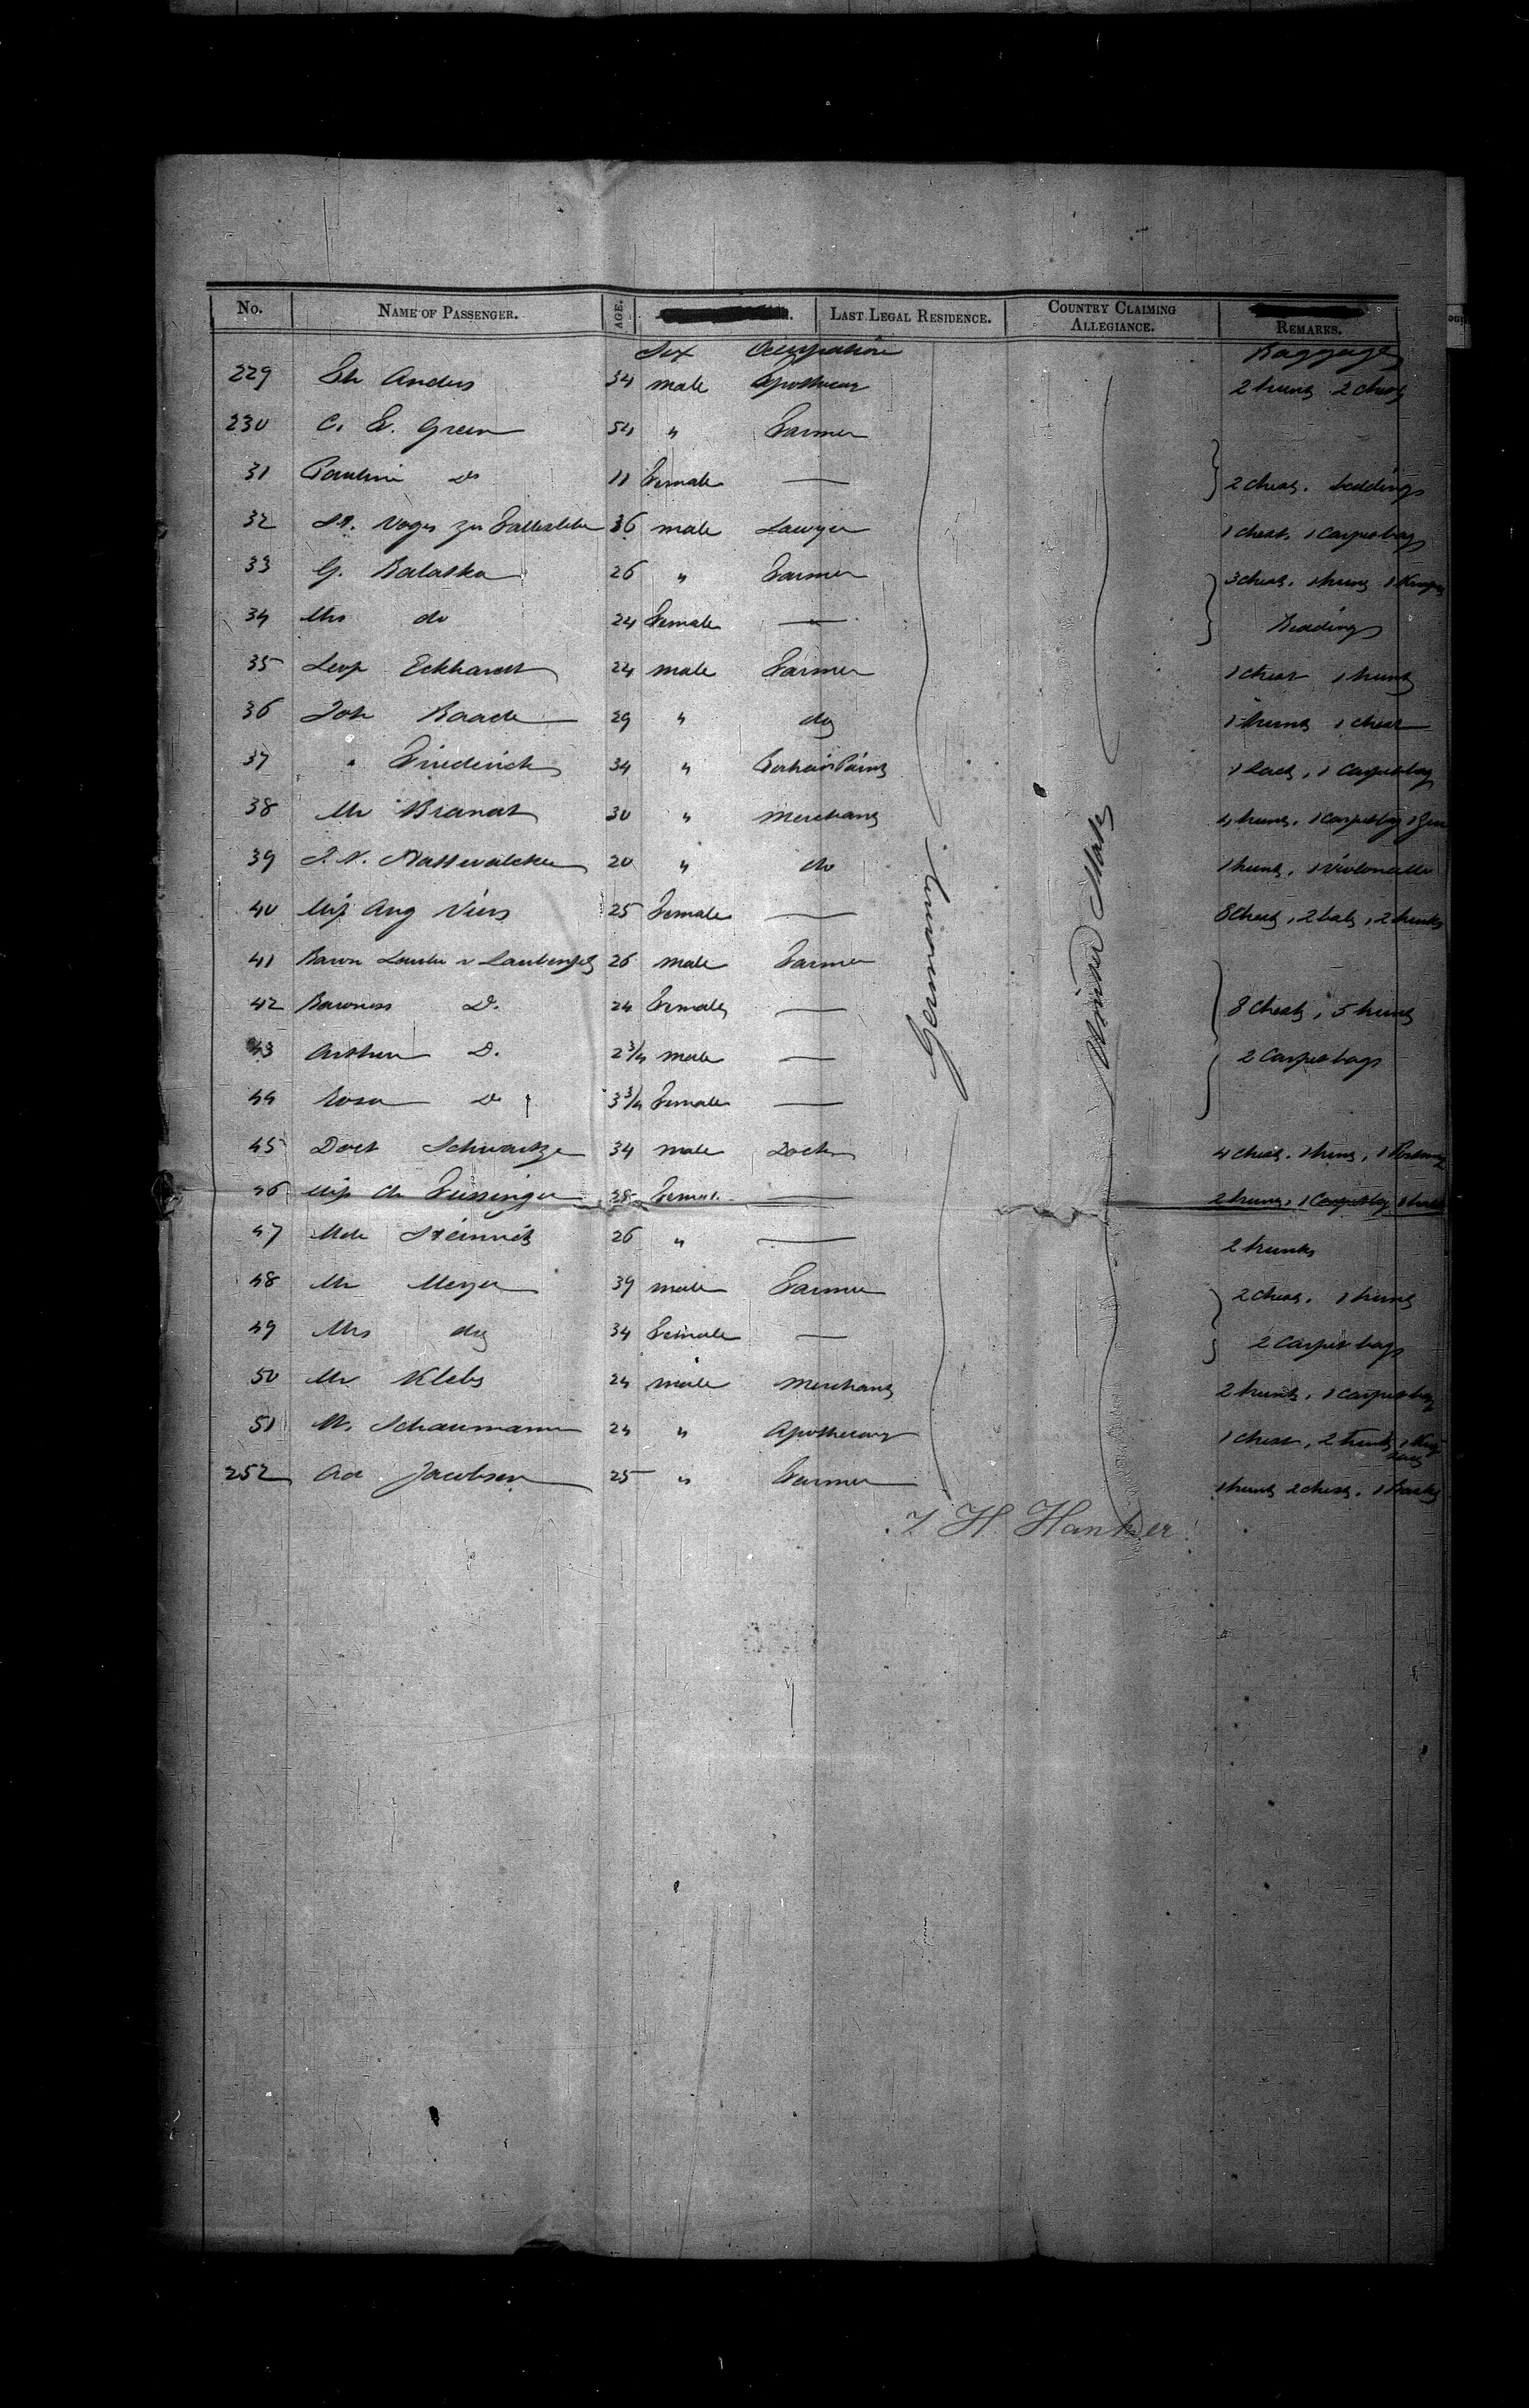 No. NAME OF PASSENGER. AGE. LAST LEGAL RESIDENCE. COUNTRY CLAIMING ALLEGIANCE. REMARKS.
Sex Occupation Baggage
229 Eh Anders 34 male Apothecar 2 trunks 2 chests
230 C. E. Green 54 " Farmer
31 Pauline Do 11 Female — 2 chests. beddings
32 36 male Lawyer 1 chest. 1 carpetbag
33 G. Balaska 26 " Farmer 3 chests. 1 trunk 1
34 Mrs do 24 Female — Beddings
35 Leop Eckhardt 24 male Farmer 1 chest 1 trunk
36 Joh Baade 29 " do 1 trunk 1 chest
37 " Friederich 34 " 1 1 carpetbag
38 Mr Brandt 30 " Merchant 4 trunks. 1 carpetbag 1
39 20 " do 1 trunk, 1 violoncello
40 Miss Aug 25 Female — 8 chests, 2 bals, 2 trunks
41 Baron 26 male Farmer
42 Baroness D. 24 Female — 8 chests, 5 trunks
43 Arthur D. 2 3/4 male — 2 carpetbags
44 Rosa Do 3 3/4 Female —
45 Doct Schwartze 34 male Doctor 4 chests. 1 trunk, 1
46 Miss 28 Female — 2 trunks, 1 carpetbag
47 Mde Steinnitz 26 " — 2 trunks
48 Mr Meyer 39 male Farmer 2 chests. 1 trunk
49 Mrs do 34 Female — 2 carpetbags
50 Mr Klebs 24 male Merchant 2 trunks. 1 carpetbag
51 W. Schaumann 24 " Apothecary 1 chest, 2 trunks
252 Ad Jacobsen 25 " Farmer 1 trunk 2 chests.
Germany.
United States
H. Hanker